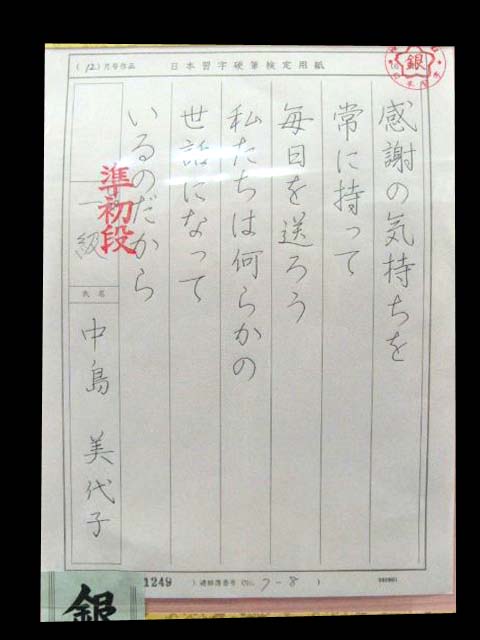 (12)月号作品 日本習字硬筆検定用紙
銀
感謝の気持ちを
常に持って
毎日を送ろう
私たちは何らかの
世話になって
いるのだから
準初段
一級
氏名
中島 美代子
1249 )
(No. 7-8 )
銀